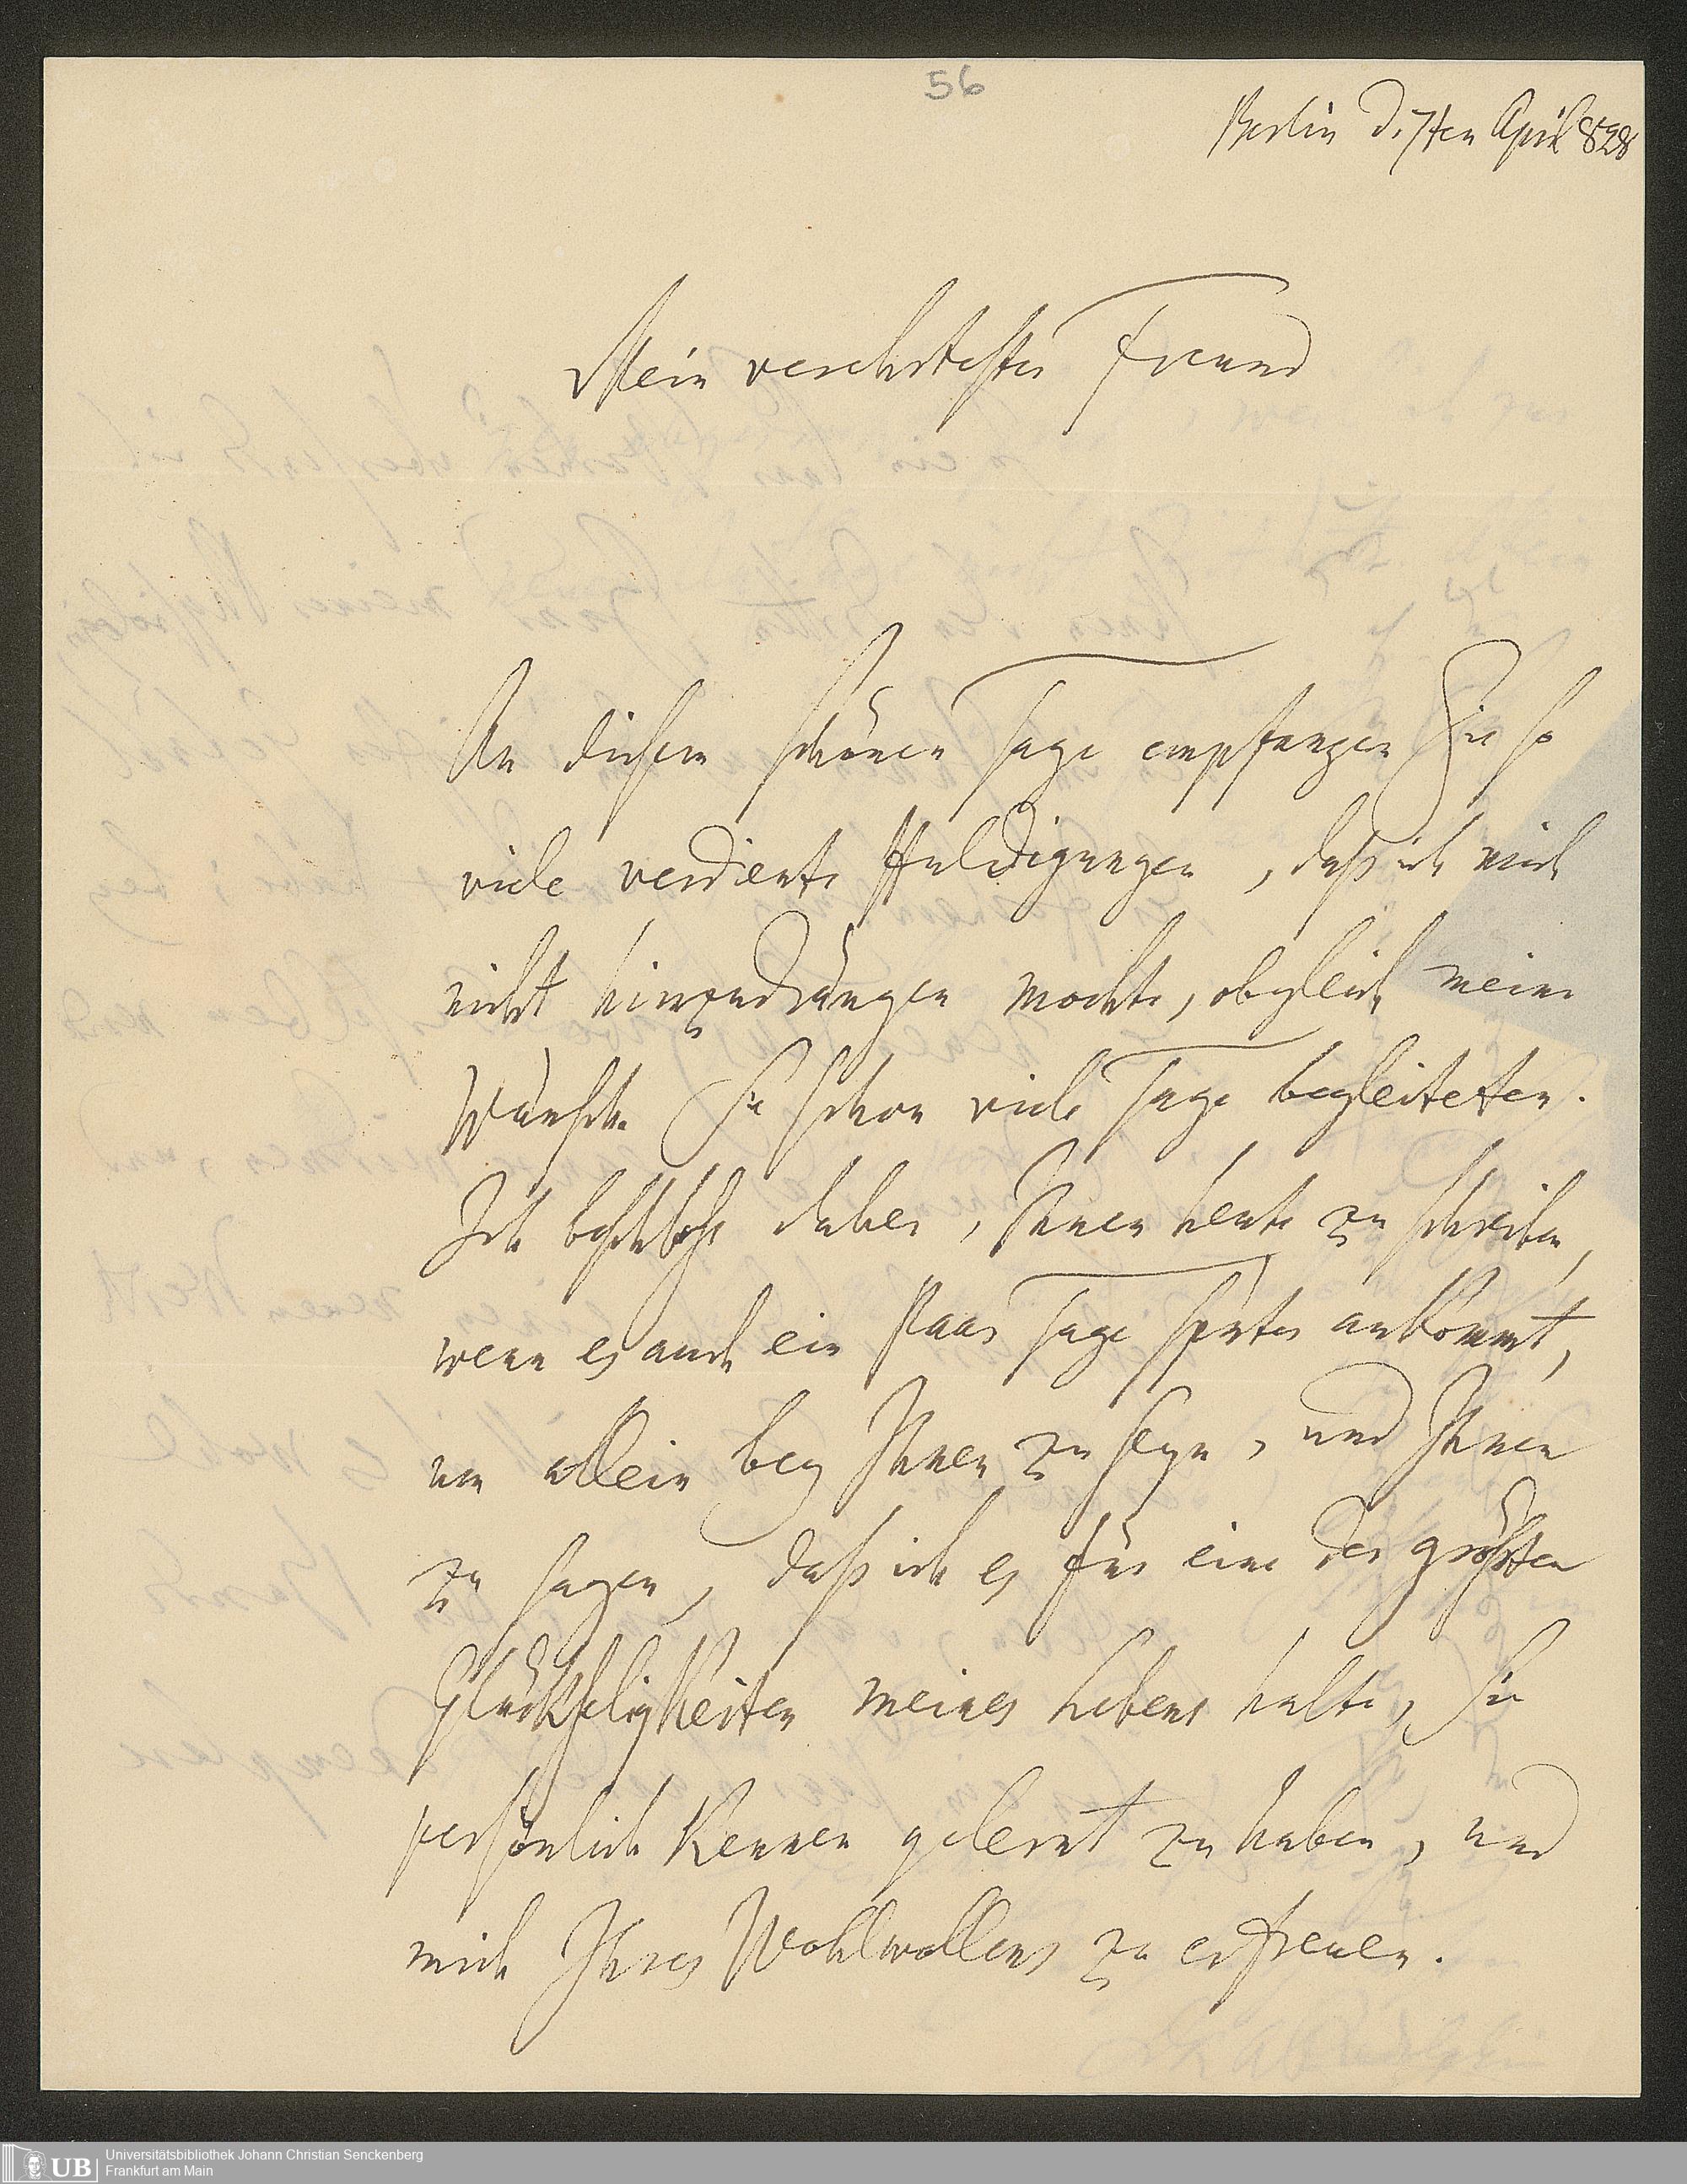 56
Berlin d. 7ten April 828
Mein verehrtester Freund
An diesem schönen Tage empfangen Sie so
viele verdiente Huldigungen, daß ich mich
nicht hinzudrängen mochte, obgleich meine
Wünsche Sie schon viele Tage begleiteten.
Ich beschloß daher, Ihnen heute zu schreiben,
wenn es auch ein Paar Tage später ankommt,
um allein bey Ihnen zu seyn, und Ihnen
zu sagen, daß ich es für eine der größten
Glückseligkeiten meines Lebens halte, Sie
persönlich kennen gelernt zu haben, und
mich Ihres Wohlwollens zu erfreuen.
UB
Universitätsbibliothek Johann Christian Senckenberg
Frankfurt am Main